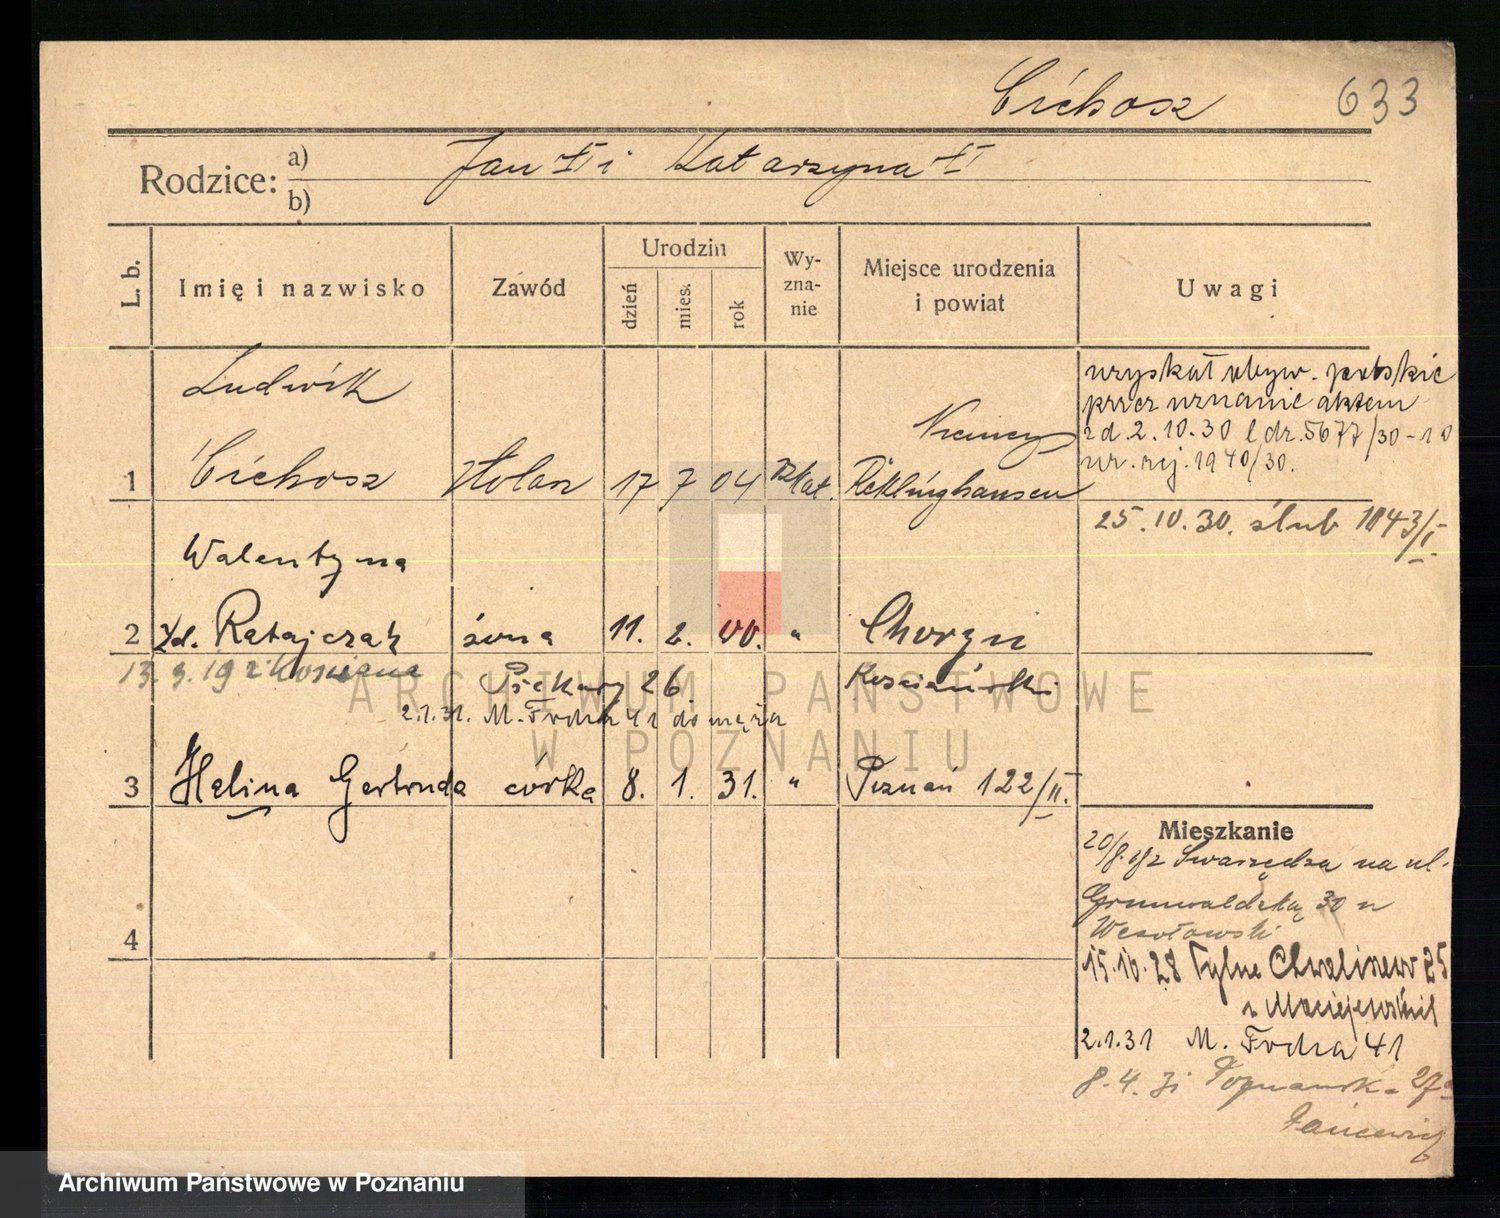 Cichosz 633
Rodzice: a) b) Jan i Katarzyna
L. b.
Imię i nazwisko
Zawód
Urodzin
dzień
mies.
rok
Wy-
zna-
nie
Miejsce urodzenia
i powiat
Uwagi
Ludwik
Niemcy
1 Cichosz 17 7 04 kat. Reklinghausen
uzyskał obyw. polskie
przez uznanie aktem
zd. 2.10.30 l dz. 5677/30-10
nr. rej. 1940/30.
25.10.30. ślub 1143/I
Walentyna
2 zd. Ratajczak żona 11. 2. 00. " Choryn
Kościański
13.9.19 z Kościana
Piekary 26
2.1.31. M. Focha 41 do męża
3 Halina Gertruda córka 8. 1. 31. " Poznań 122/II.
4
Mieszkanie
20/8. z Swarzędza na ul.
Grunwaldzką 30 u
Wesołowski
15.10.28 Tylne Chwaliszewo 25
u Maciejewskich
2.1.31 M. Focha 41
8.4.31 Poznańsk. 27a
ARCHIWUM PAŃSTWOWE
W POZNANIU
Archiwum Państwowe w Poznaniu